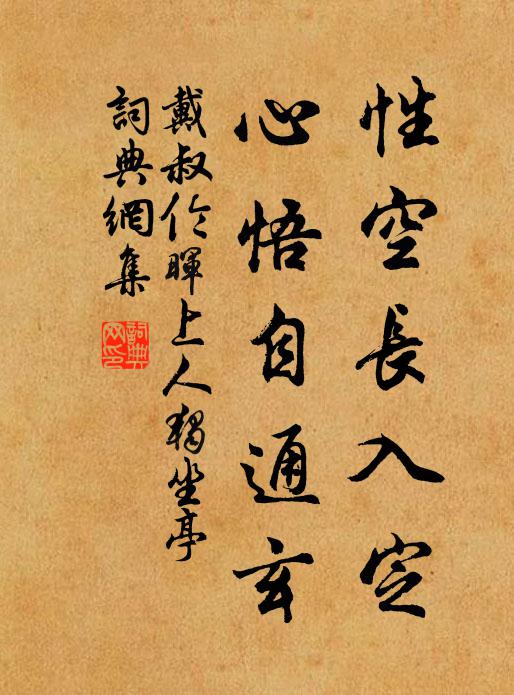 性空長入定
心悟自通玄
戴叔伦暉上人獨坐亭
詞典網集
詞典网印